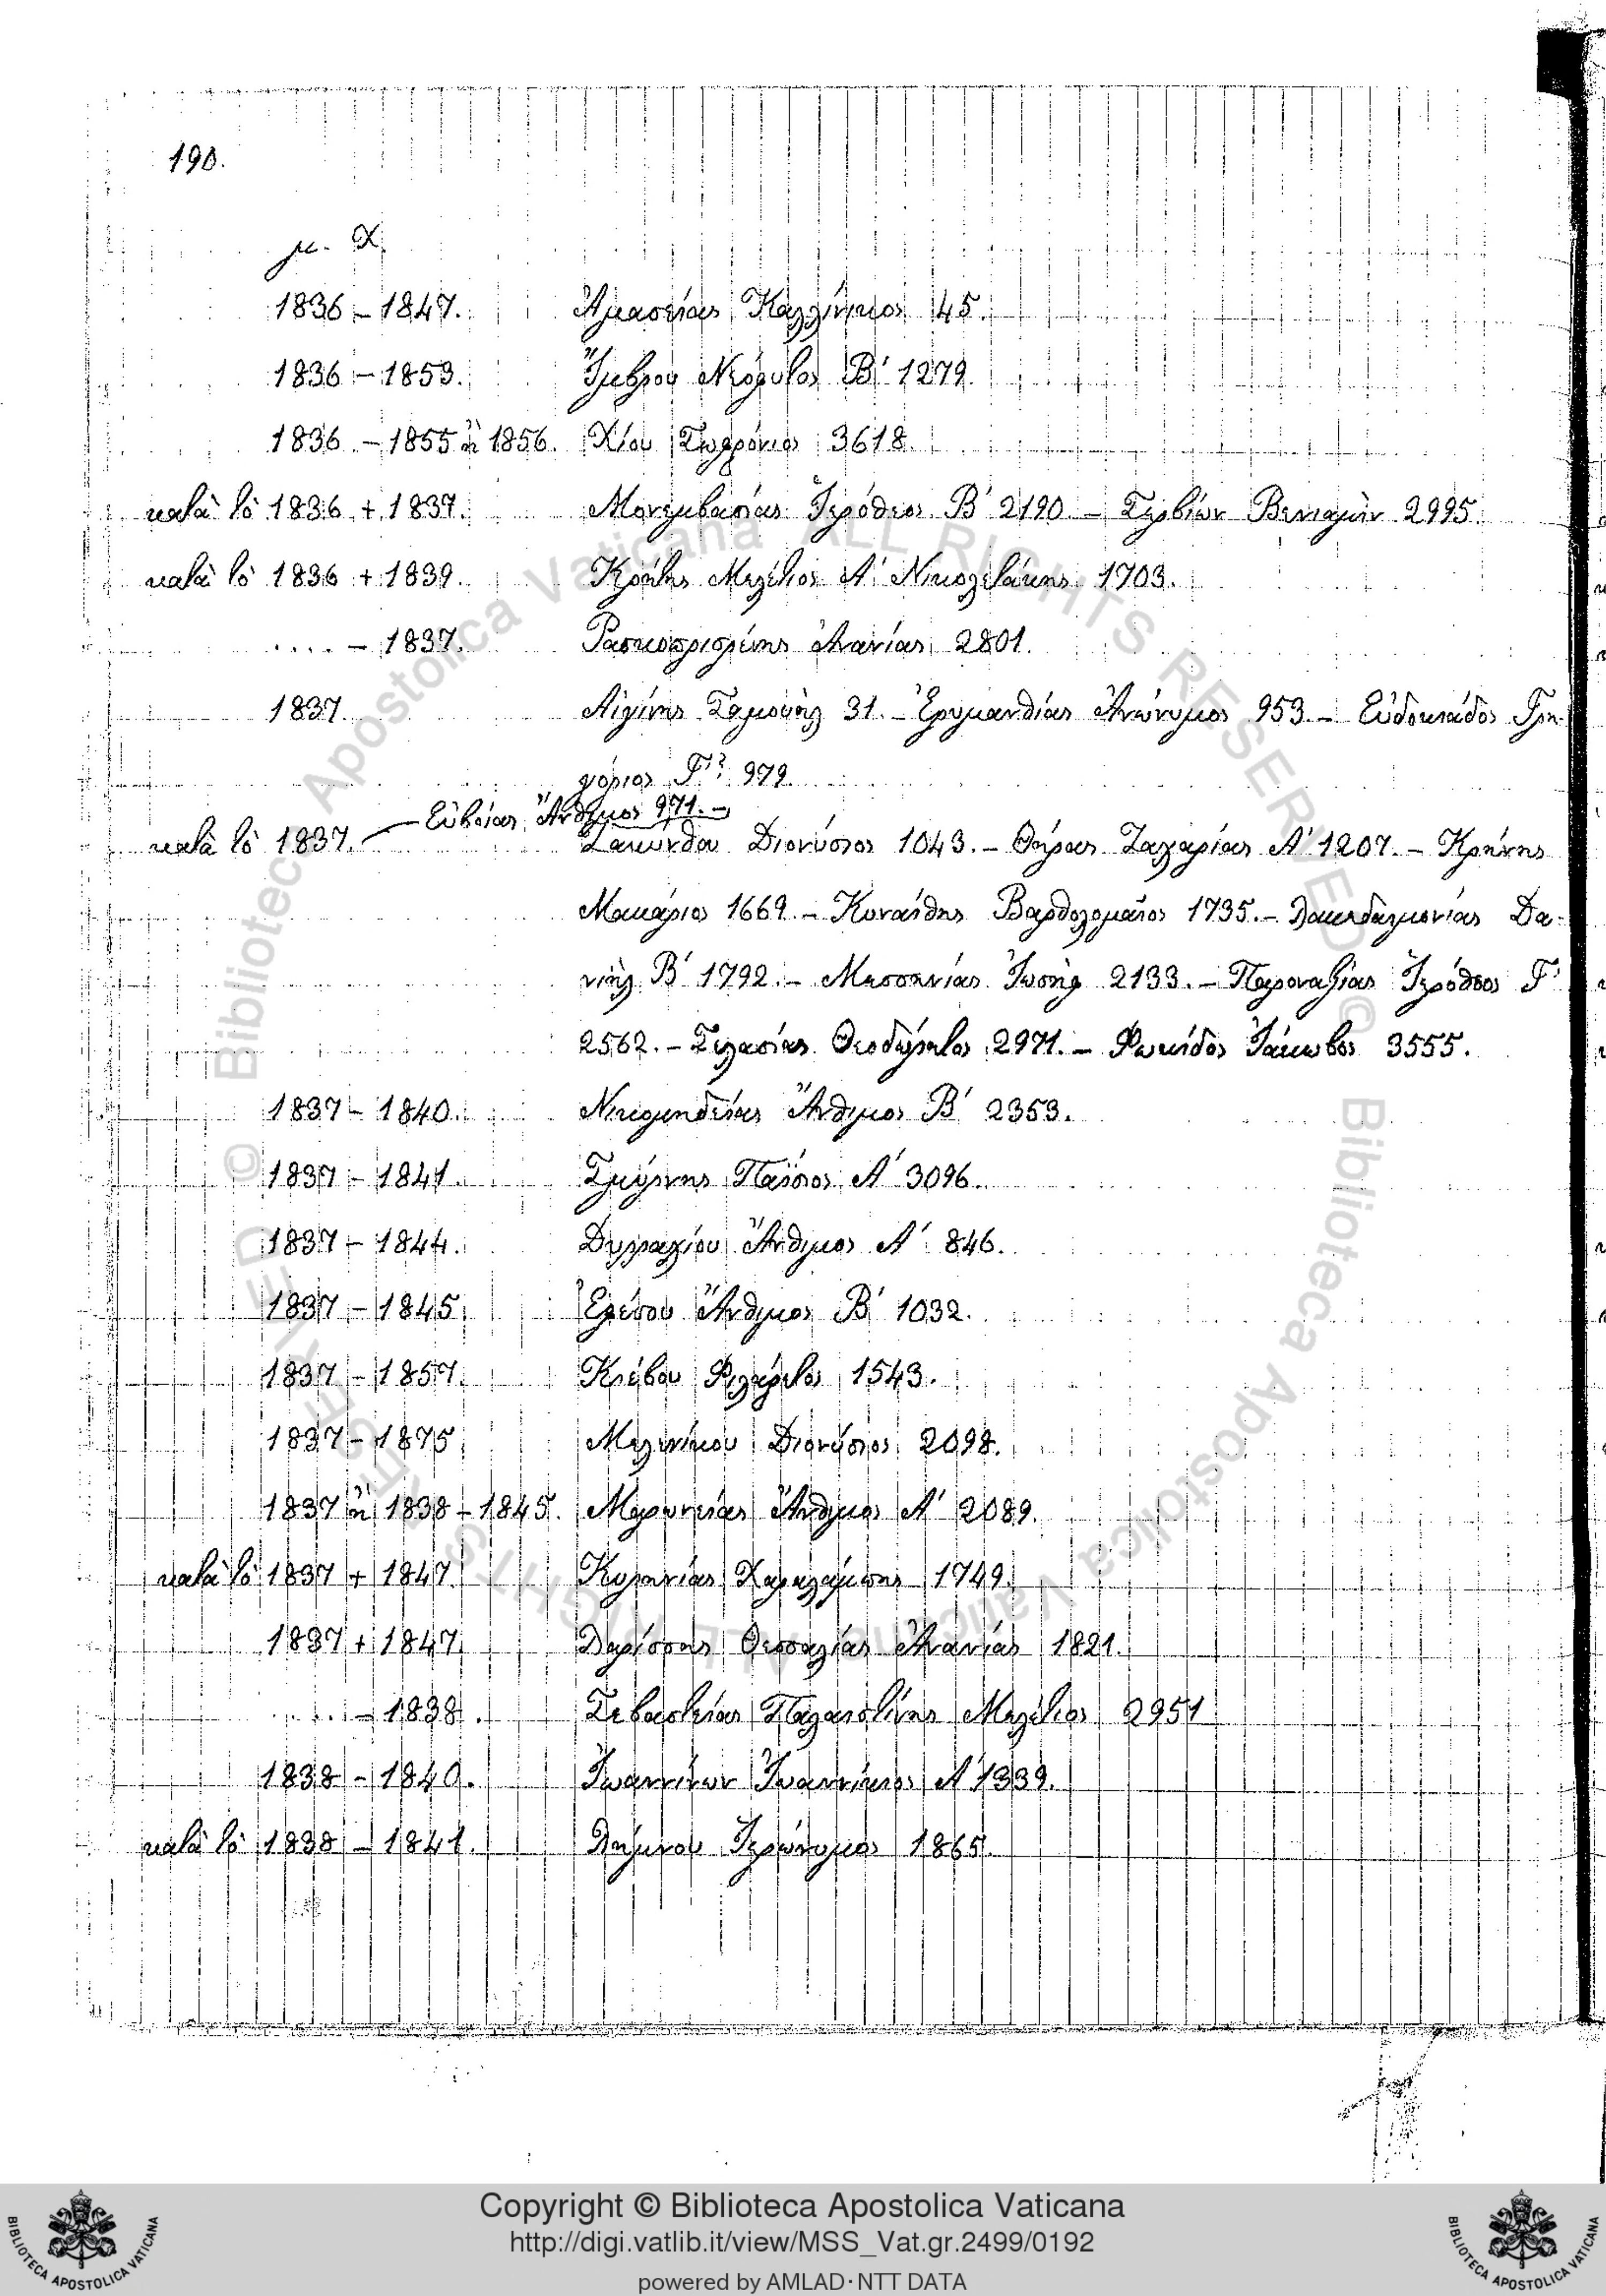 190.
μ. Χ.
1836 – 1847. Ἀμασείας Καλλίνικος 45.
1836 – 1853. Ἴμβρου Νεόφυτος Β΄ 1279.
1836 – 1855 ἢ 1856. Χίου Σωφρόνιος 3618.
κατὰ τὸ 1836 + 1837. Μονεμβασίας Ἱερόθεος Β΄ 2190 – Σερβίων Βενιαμὶν 2995.
κατὰ τὸ 1836 + 1839. Κρήτης Μελέτιος Α΄ Νικολετάκης 1703.
.... – 1837. Ρασκοπρισρένης Ἀνανίας 2801.
1837. Αἰγίνης Σαμουὴλ 31. – Ἐρυμανθίας Ἀνώνυμος 953. – Εὐδοκιάδος Γρη-
γόριος Γ΄? 979.
Εὐβοίας Ἄνθιμος 971. –
κατὰ τὸ 1837. Ζακύνθου Διονύσιος 1043. – Θήρας Ζαχαρίας Α΄ 1207. – Κρήνης
Μακάριος 1669. – Κυναίθης Βαρθολομαῖος 1735. – Λακεδαιμονίας Δα-
νιὴλ Β΄ 1792. – Μεσσηνίας Ἰωσὴφ 2133. – Παροναξίας Ἱερόθεος Γ΄
2562. – Σελασίας Θεοδώρητος 2971. – Φωκίδος Ἰάκωβος 3555.
1837 – 1840. Νικομηδείας Ἄνθιμος Β΄ 2353.
1837 – 1841. Σμύρνης Παΐσιος Α΄ 3096.
1837 – 1844. Δυρραχίου Ἄνθιμος Α΄ 846.
1837 – 1845. Ἐφέσου Ἄνθιμος Β΄ 1032.
1837 – 1857. Κιέβου Φιλάρετος 1543.
1837 – 1875 Μελενίκου Διονύσιος 2098.
1837 ἢ 1838 – 1845. Μαρωνείας Ἄνθιμος Α΄ 2089.
κατὰ τὸ 1837 + 1847. Κυρηνίας Χαραλάμπης 1749.
1837 + 1847. Λαρίσσης Θεσσαλίας Ἀνανίας 1821.
.... – 1838. Σεβαστείας Παλαιστίνης Μελέτιος 2951
1838 – 1840. Ἰωαννίνων Ἰωαννίκιος Α΄ 1339.
κατὰ τὸ 1838 – 1841. Λήμνου Ἱερώνυμος 1865.
© Biblioteca Apostolica Vaticana ALL RIGHTS RESERVED
© Biblioteca Apostolica Vaticana ALL RIGHTS RESERVED
Copyright © Biblioteca Apostolica Vaticana
http://digi.vatlib.it/view/MSS_Vat.gr.2499/0192
powered by AMLAD·NTT DATA
BIBLIOTECA APOSTOLICA VATICANA
BIBLIOTECA APOSTOLICA VATICANA